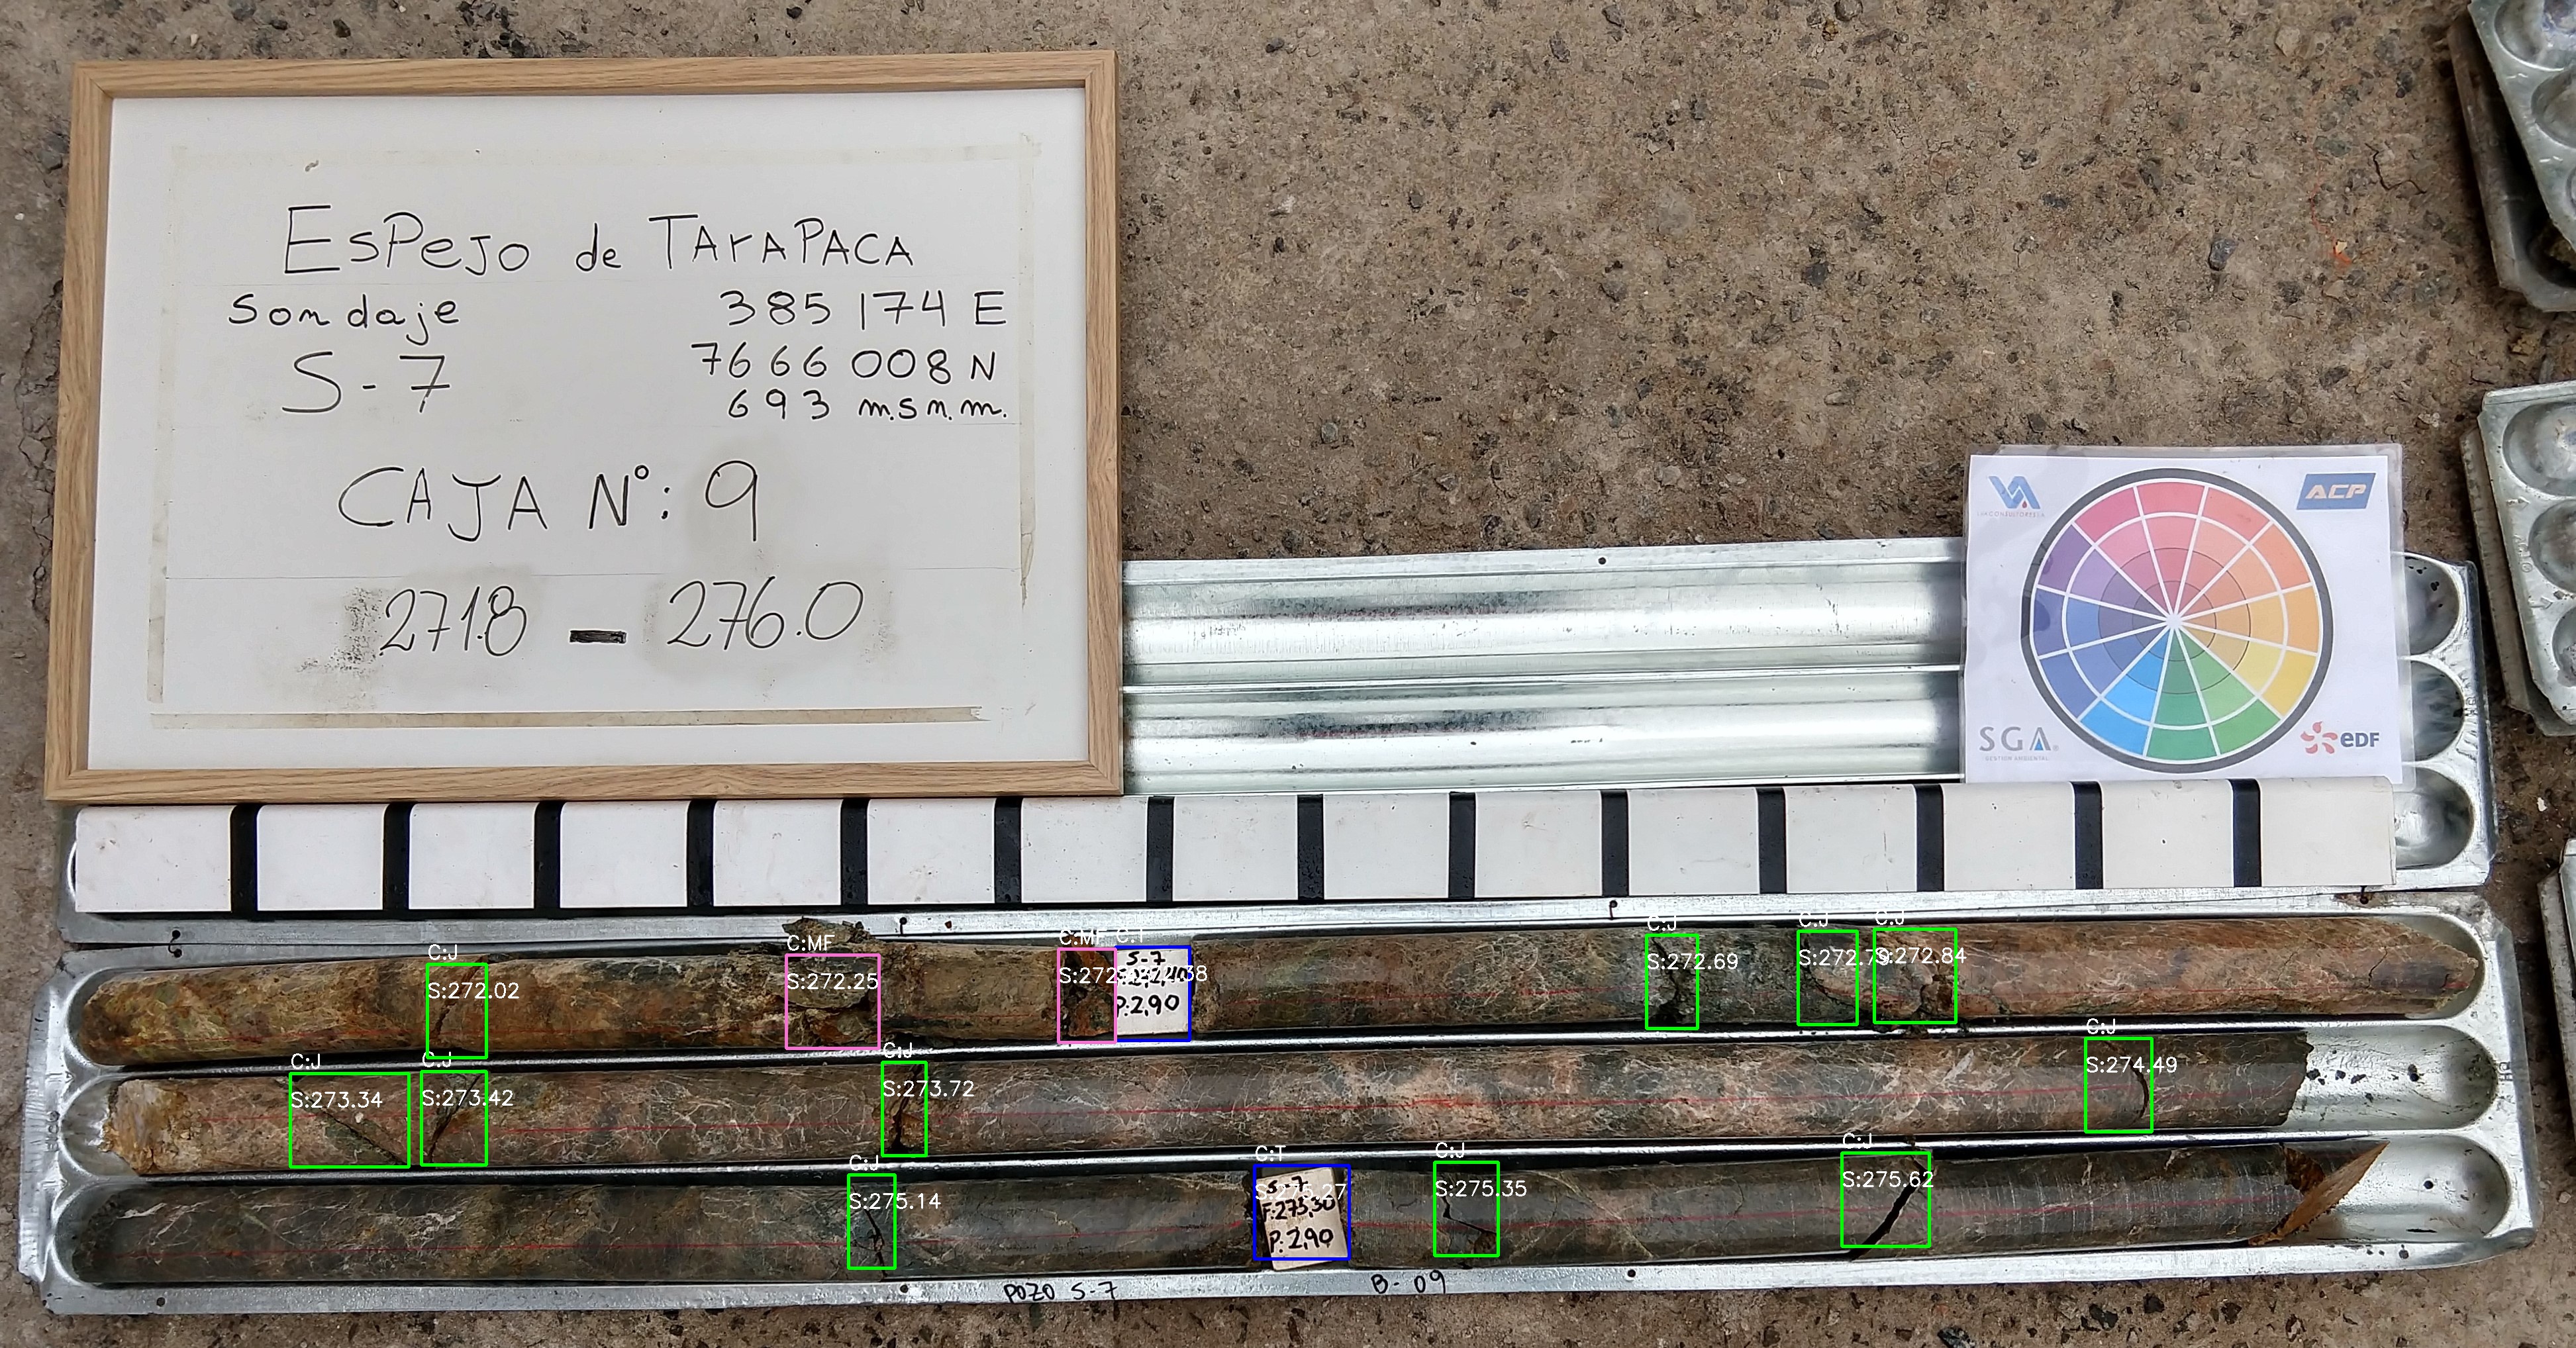 ESPEJO de TArAPACA
Sondaje
385 174 E
S-7
7666 008 N
693 m.s.n.m.
CAJA N°: 9
271.8 - 276.0
ACP
SGA
GESTION AMBIENTAL
eDF
C:J
S:272.02
C:MF
S:272.25
C:MF
S:272
S-7
P:2,90
C:J
S:272.69
C:J
S:272.79
C:J
S:272.84
C:J
S:273.34
C:J
S:273.42
C:J
S:273.72
C:J
S:274.49
C:J
S:275.14
C:T
S:275.27
S-7
F:275,30
P:2,90
C:J
S:275.35
C:J
S:275.62
POZO S-7
B-09
HQ